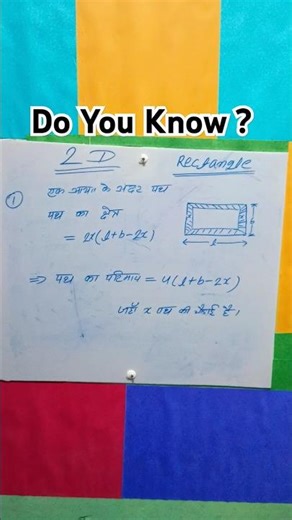 Do You Know ?
2 D Rectangle
① एक आयत के अंदर पथ
पथ का क्षेत्र
= 2x(l+b-2x)
b
l
⇒ पथ का परिमाप = 4(l+b-2x)
जहाँ x पथ की चौड़ाई है।